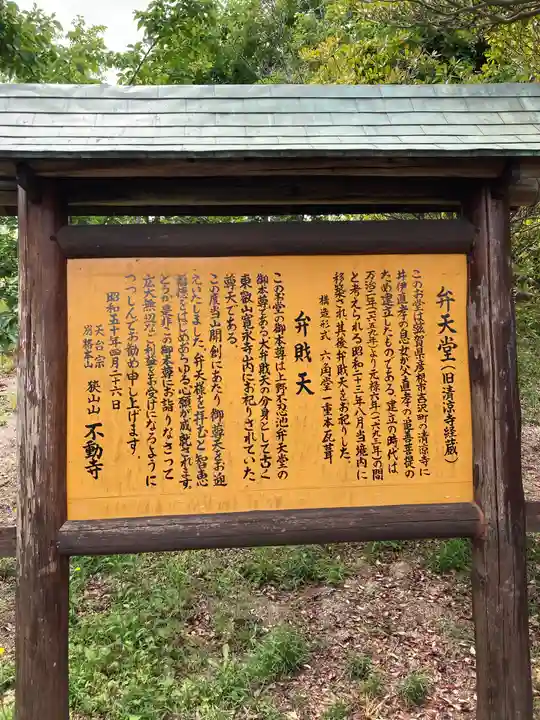 弁天堂（旧清涼寺経蔵）
このお堂は滋賀県彦根市古沢町の清涼寺に
井伊直孝の息女が父直孝の追善菩提の
ため建立したものである。建立の時代は
万治二年（一六五九年）より元禄六年（一六九三年）の間
と考えられる昭和二十三年八月当境内に
移築され其後弁財天をお祀りした。
構造形式 六角堂 一重本瓦葺
弁財天
この本堂の御本尊は上野不忍池弁天堂の
御本尊である大弁財天の分身として古く
東叡山寛永寺山内にお祀りされていた
尊天である。
この度当山開創にあたり御尊天をお迎
えいたしました。弁天様を拝むと智恵
福徳をはじめあらゆる心願が成就されます。
どうか是非この御本尊にお詣りなさって
広大無辺なご利益をお受けになるように
つつしんでお勧め申し上げます。
昭和五十年四月二十六日
天台宗
別格本山 狭山山 不動寺